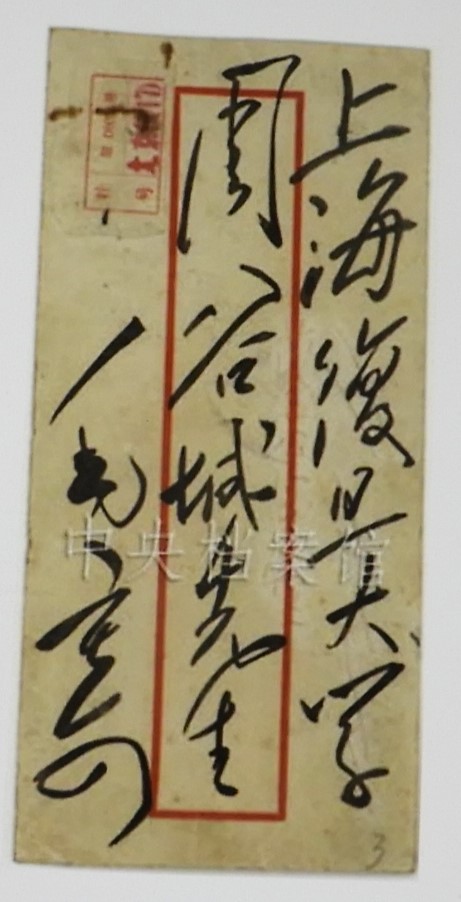 上海復旦大学
周谷城先生
毛寄
中央档案馆
3